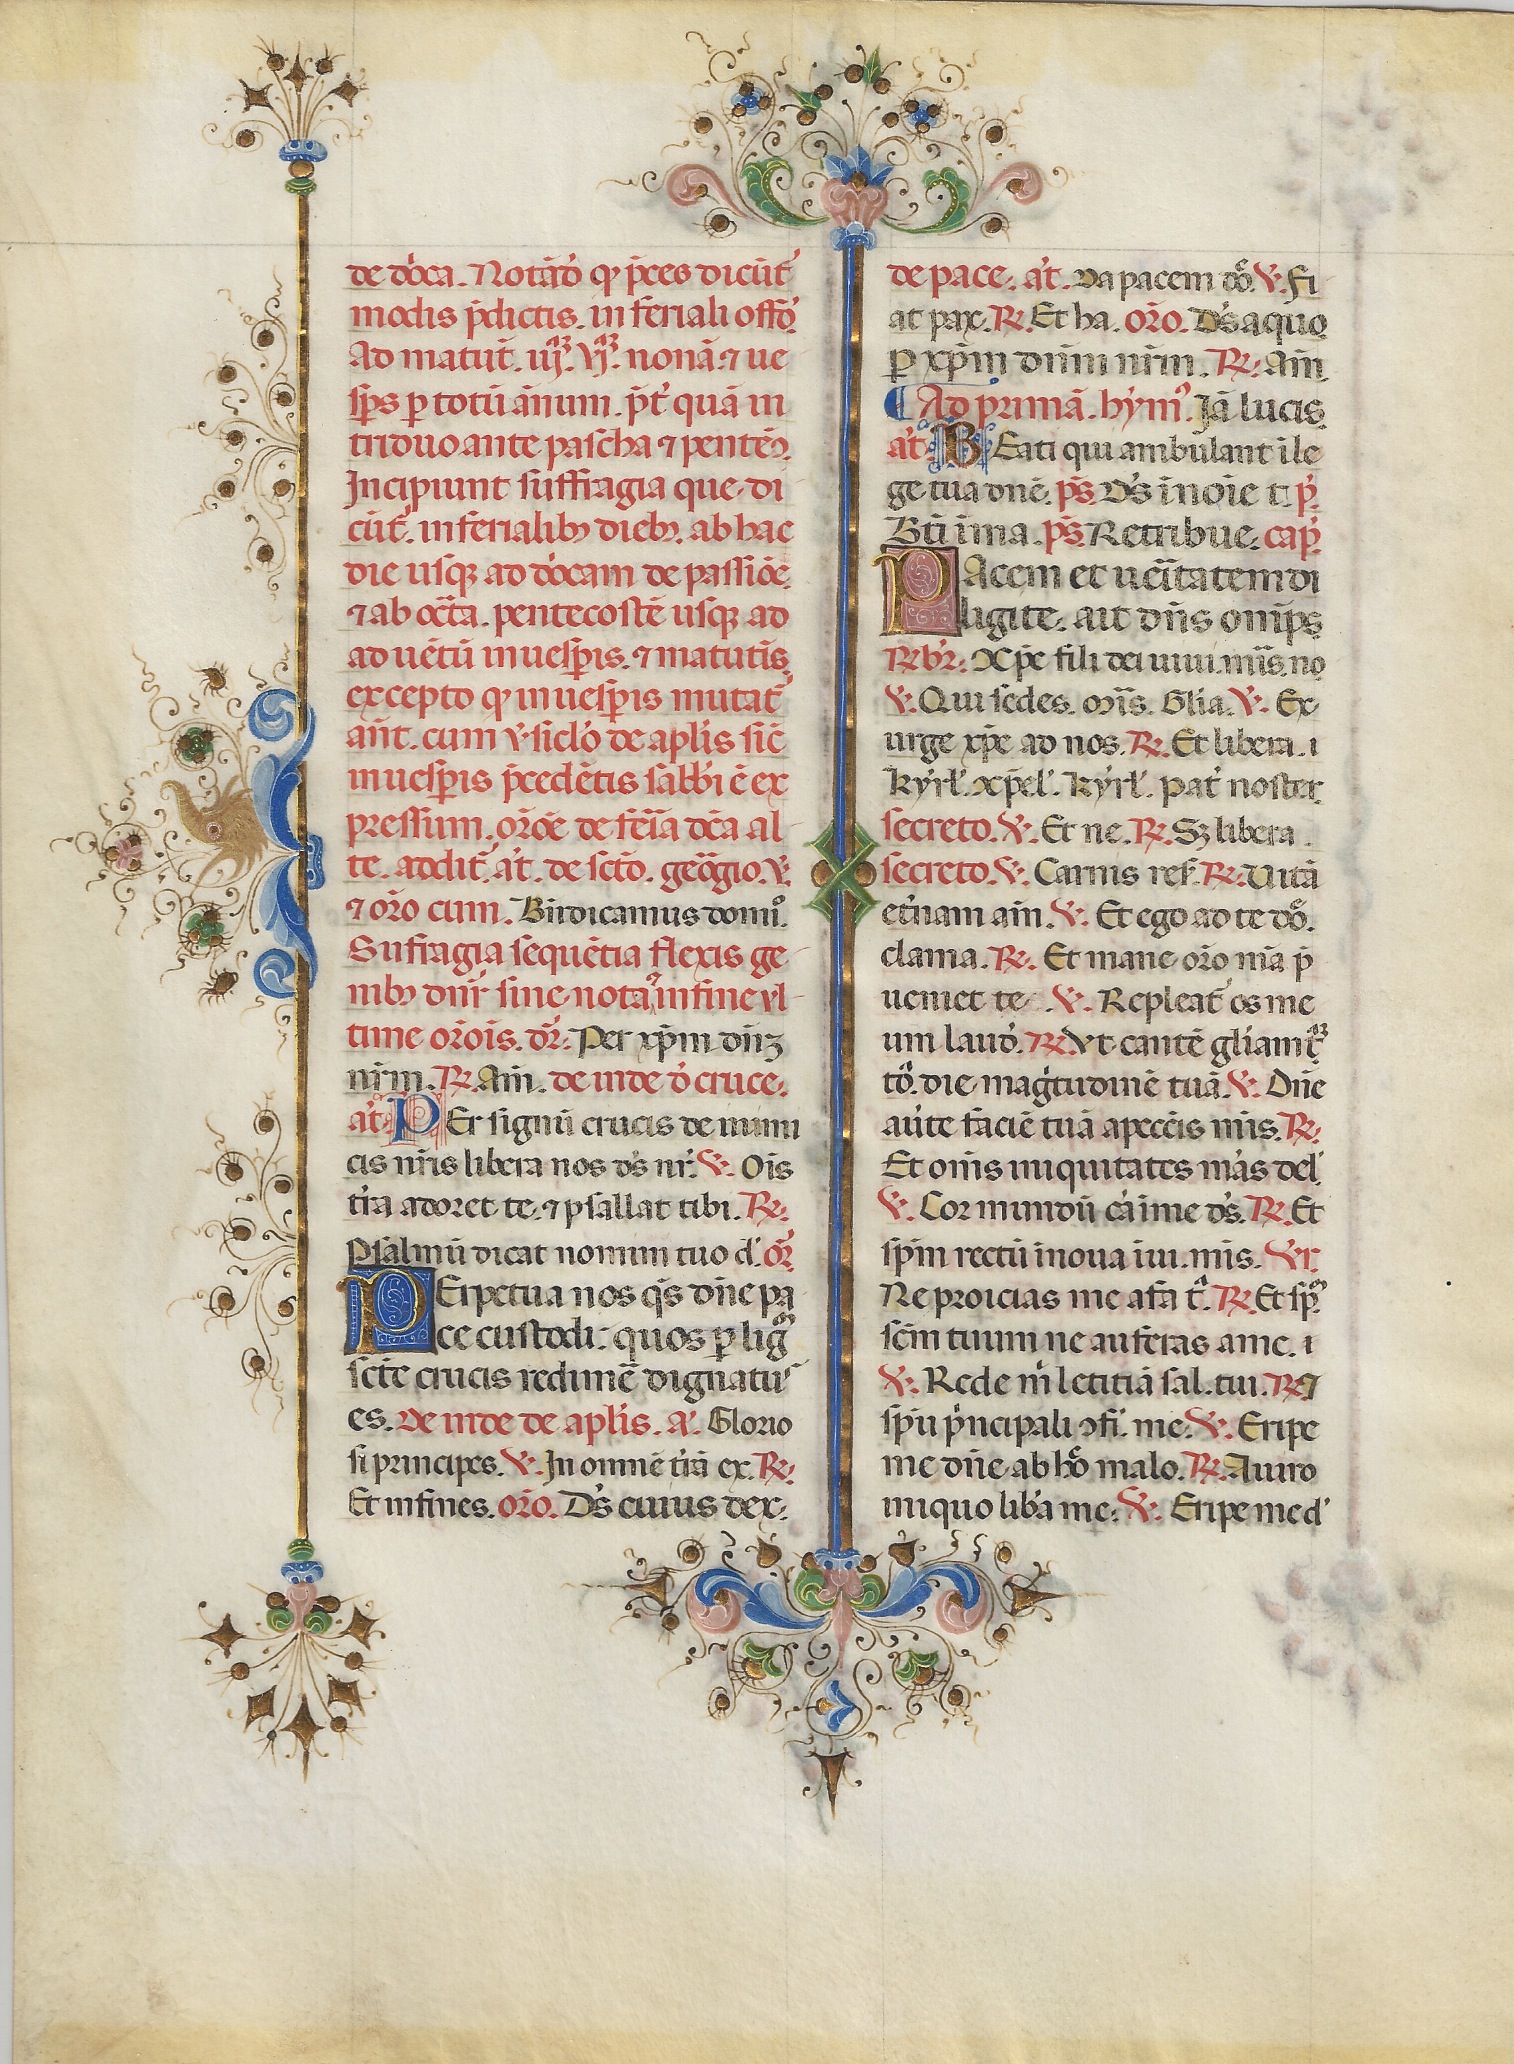 de dõca. Notãdo̓ ꝙ p̃ces dicũt᷑
modis p̃dictis. in feriali offo̓
Ad matut̓. iijꝝ. vjꝝ. nonã. ⁊ ue
sp̃s ꝑ totũ ãnum. p̃t̓ quã in
triduo ante pascha ⁊ pentec̓.
Incipiunt suffragia que di
cũt᷑. in ferialibꝰ diebꝰ. ab hac
die usqꝫ ad dõcam de passiõe.
⁊ ab oct̃a. pentecostẽ usqꝫ ad
aduẽtũ in uesp̃is. ⁊ matutis̃.
excepto ꝙ in uesp̃is mutat᷑
añt. cum v̓siclo̓ de aplis̃ sic̃
in uesp̃is p̃cedẽtis sabb̓i ẽ ex
pressum. orõe de fer̃ia dc̃a al
te. addit᷑. a̓t. de sctõ. geõgio. v̓.
⁊ orõ cum. Bñdicamus domio̓.
Suffragia sequẽtia flexis ge
nibꝰ dnr̃ sine nota. in fine vl
time orõis. dr̃: Per xp̃m dñꝫ
nr̃m. ℟. Am̃. de inde d̓ cruce.
a̓t. Per signũ crucis de inimi
cis nr̃is libera nos ds̃ nr̃. ℣. Ois̃
tr̃a adoret te. ⁊ psallat tibi. ℟.
Psalmũ dicat nomini tuo d̓. or̃.
Perpetua nos qs̃ dñe pa
ce custodi: quos ꝑ lignũ
sctẽ crucis redimẽ dignatuˢ
es. De inde de aplis̃. a̓. Glorio
si principes. ℣. In omnẽ tr̃ã ex. ℟.
Et in fines. orõ. Ds̃ cuius dex.
de pace. a̓t. Da pacem dõ. ℣. Fi
at pax. ℟. Et ha. orõ. Ds̃ a quo
ꝑ xp̃m dñm nr̃m. ℟. Am̃.
Ad primã. hymꝰ. Iã lucis
a̓t. Beati qui ambulant i le
ge tua dñe. ps̃. Ds̃ in oie t. p̃.
Bti̓ ima. ps̃. Retribue. cap̓.
Pacem et ueri̓tatem di
ligite. ait dñs omp̃s
℟ br̓. Xp̃e fili dei uiui. mis̃. no
℣. Qui sedes. mis̃. Glia. ℣. Ex
urge xp̃e ad nos. ℟. Et libera. i
kyrl̓. xp̃el̓. kyrl̓. Pat̓ noster
secreto. ℣. Et ne. ℟. Sꝫ libera.
secreto. ℣. Carnis res̓. ℟. Uitã
et̓nam am̃. ℣. Et ego ad te dõ.
clama. ℟. Et mane orõ mã p̃
ueniet te. ℣. Repleat᷑ os me
um laud̓. ℟. Vt cantẽ gliam̃ t
to̓. die magi̓tudinẽ tuã. ℣. Dñe
au̓te faciẽ tuã a pecc̃is mis̃. ℟.
Et om̃s iniquitates mas̃ del̓
℣. Cor mundũ c̓a i me ds̃. ℟. Et
sp̃m rectũ inoua i ui. mis̃. ℣r
Ne proicias me a fa t̓. ℟. Et sp̃m
sc̃m tuum ne auferas a me. i
℣. Rede m̓ letitiã sal. tui. ℟. ⁊
sp̃u p̓ncipali ↄfi. me. ℣. Eripe
me dñe ab hõ malo. ℟. A uiro
iniquo lib̓a me. ℣. Eripe me d̓